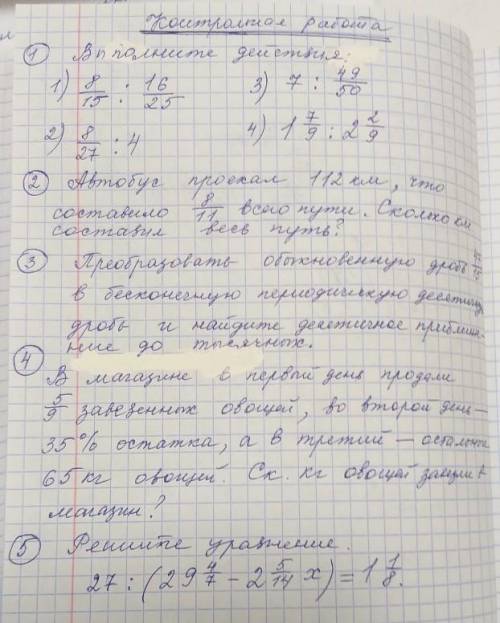 Контрольная работа
① Выполните действия:
1) 8/15 : 16/25 3) 7 : 49/50
2) 8/27 : 4 4) 1 7/9 : 2 2/9
② Автобус проехал 112 км, что
составило 8/11 всего пути. Сколько км
составил весь путь?
③ Преобразовать обыкновенную дробь
в бесконечную периодическую десятичную
дробь и найдите десятичное приближе-
ние до тысячных.
④
В магазине в первый день продали
5/9 завезенных овощей, во второй день –
35% остатка, а в третий – остальные
65 кг овощей. Ск. кг овощей завезли в
магазин?
⑤ Решите уравнение.
27 : (29 4/7 - 2 5/14 x) = 1 1/8.